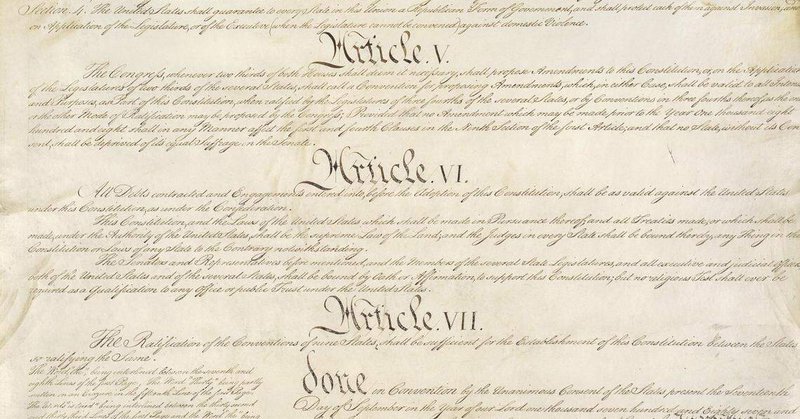 Section. 4. The United States shall guarantee to every State in this Union a Republican Form of Government, and shall protect each of them against Invasion; and
on Application of the Legislature, or of the Executive (when the Legislature cannot be convened) against domestic Violence.
Article. V.
The Congress, whenever two thirds of both Houses shall deem it necessary, shall propose Amendments to this Constitution, or, on the Application
of the Legislatures of two thirds of the several States, shall call a Convention for proposing Amendments, which, in either Case, shall be valid to all Intents
and Purposes, as Part of this Constitution, when ratified by the Legislatures of three fourths of the several States, or by Conventions in three fourths thereof, as the one
or the other Mode of Ratification may be proposed by the Congress; Provided that no Amendment which may be made prior to the Year One thousand eight
hundred and eight shall in any Manner affect the first and fourth Clauses in the Ninth Section of the first Article; and that no State, without its Con
sent, shall be deprived of its equal Suffrage in the Senate.
Article. VI.
All Debts contracted and Engagements entered into, before the Adoption of this Constitution, shall be as valid against the United States
under this Constitution, as under the Confederation.
This Constitution, and the Laws of the United States which shall be made in Pursuance thereof; and all Treaties made, or which shall be
made, under the Authority of the United States, shall be the supreme Law of the Land; and the Judges in every State shall be bound thereby, any Thing in the
Constitution or Laws of any State to the Contrary notwithstanding.
The Senators and Representatives before mentioned, and the Members of the several State Legislatures, and all executive and judicial Officers,
both of the United States and of the several States, shall be bound by Oath or Affirmation, to support this Constitution; but no religious Test shall ever be
required as a Qualification to any Office or public Trust under the United States.
Article. VII.
The Ratification of the Conventions of nine States, shall be sufficient for the Establishment of this Constitution between the States
so ratifying the Same.
The Word, "the," being interlined between the seventh and
eighth Lines of the first Page, The Word "Thirty" being partly
written on an Erazure in the fifteenth Line of the first Page,
The Words "is tried" being interlined between the thirty second
done in Convention by the Unanimous Consent of the States present the Seventeenth
Day of September in the Year of our Lord one thousand seven hundred and Eighty seven and